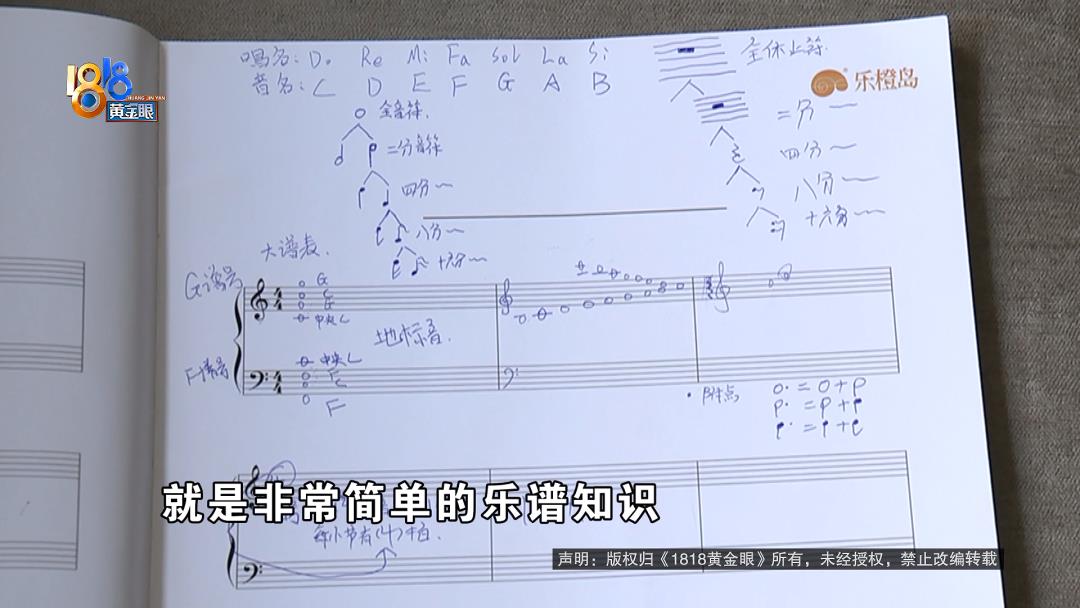 1818
HUANG JIN YAN
黄金眼
唱名: Do Re Mi Fa Sol La Si
音名: C D E F G A B
全休止符
乐橙岛
全音符.
二分音符
四分~
八分~
十六分~
二分~
四分~
八分~
十六分~
大谱表.
G谱号
G
C
G
中央C
地标音.
4
4
F谱号
中央C
F
C
F
4
4
·附点
就是非常简单的乐谱知识
每小节有(4)拍.
声明：版权归《1818黄金眼》所有，未经授权，禁止改编转载